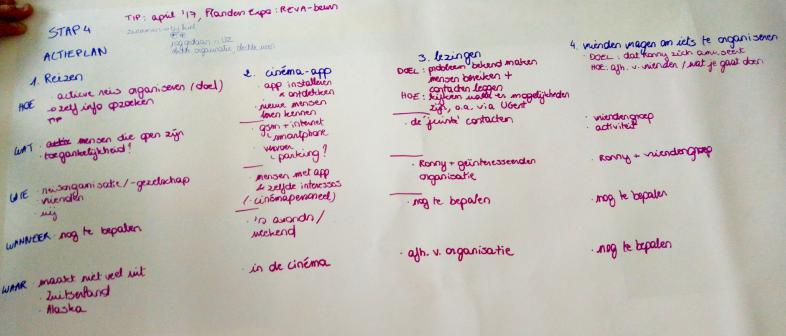 TIP: april '17, Flanders Expo: REVA-beurs
STAP 4
ACTIEPLAN
1. Reizen
HOE
actieve reis organiseren (doel)
zelf info opzoeken
TIP
WAT
mensen die open zijn
toegankelijkheid?
WIE
reisorganisatie/-gezelschap
vrienden
wij
WANNEER
nog te bepalen
WAAR
maakt niet veel uit
Zwitserland
Alaska
2. cinéma-app
app installeren
+ ontdekken
nieuwe mensen
leren kennen
gsm + internet
smartphone
vervoer
parking?
mensen met app
& zelfde interesses
(-cinémapersoneel)
's avonds/
weekend
in de cinéma
3. lezingen
DOEL: probleem bekend maken
mensen bereiken +
contacten leggen
HOE: kijken welke er mogelijkheden
zijn, o.a. via UGent
de 'juiste' contacten
Ronny + geïnteresseerden
organisatie
nog te bepalen
afh. v. organisatie
4. vrienden vragen om iets te organiseren
DOEL: dat Ronny zich amuseert
HOE: afh. v. vrienden / wat je gaat doen
vriendengroep
activiteit
Ronny + vriendengroep
nog te bepalen
nog te bepalen